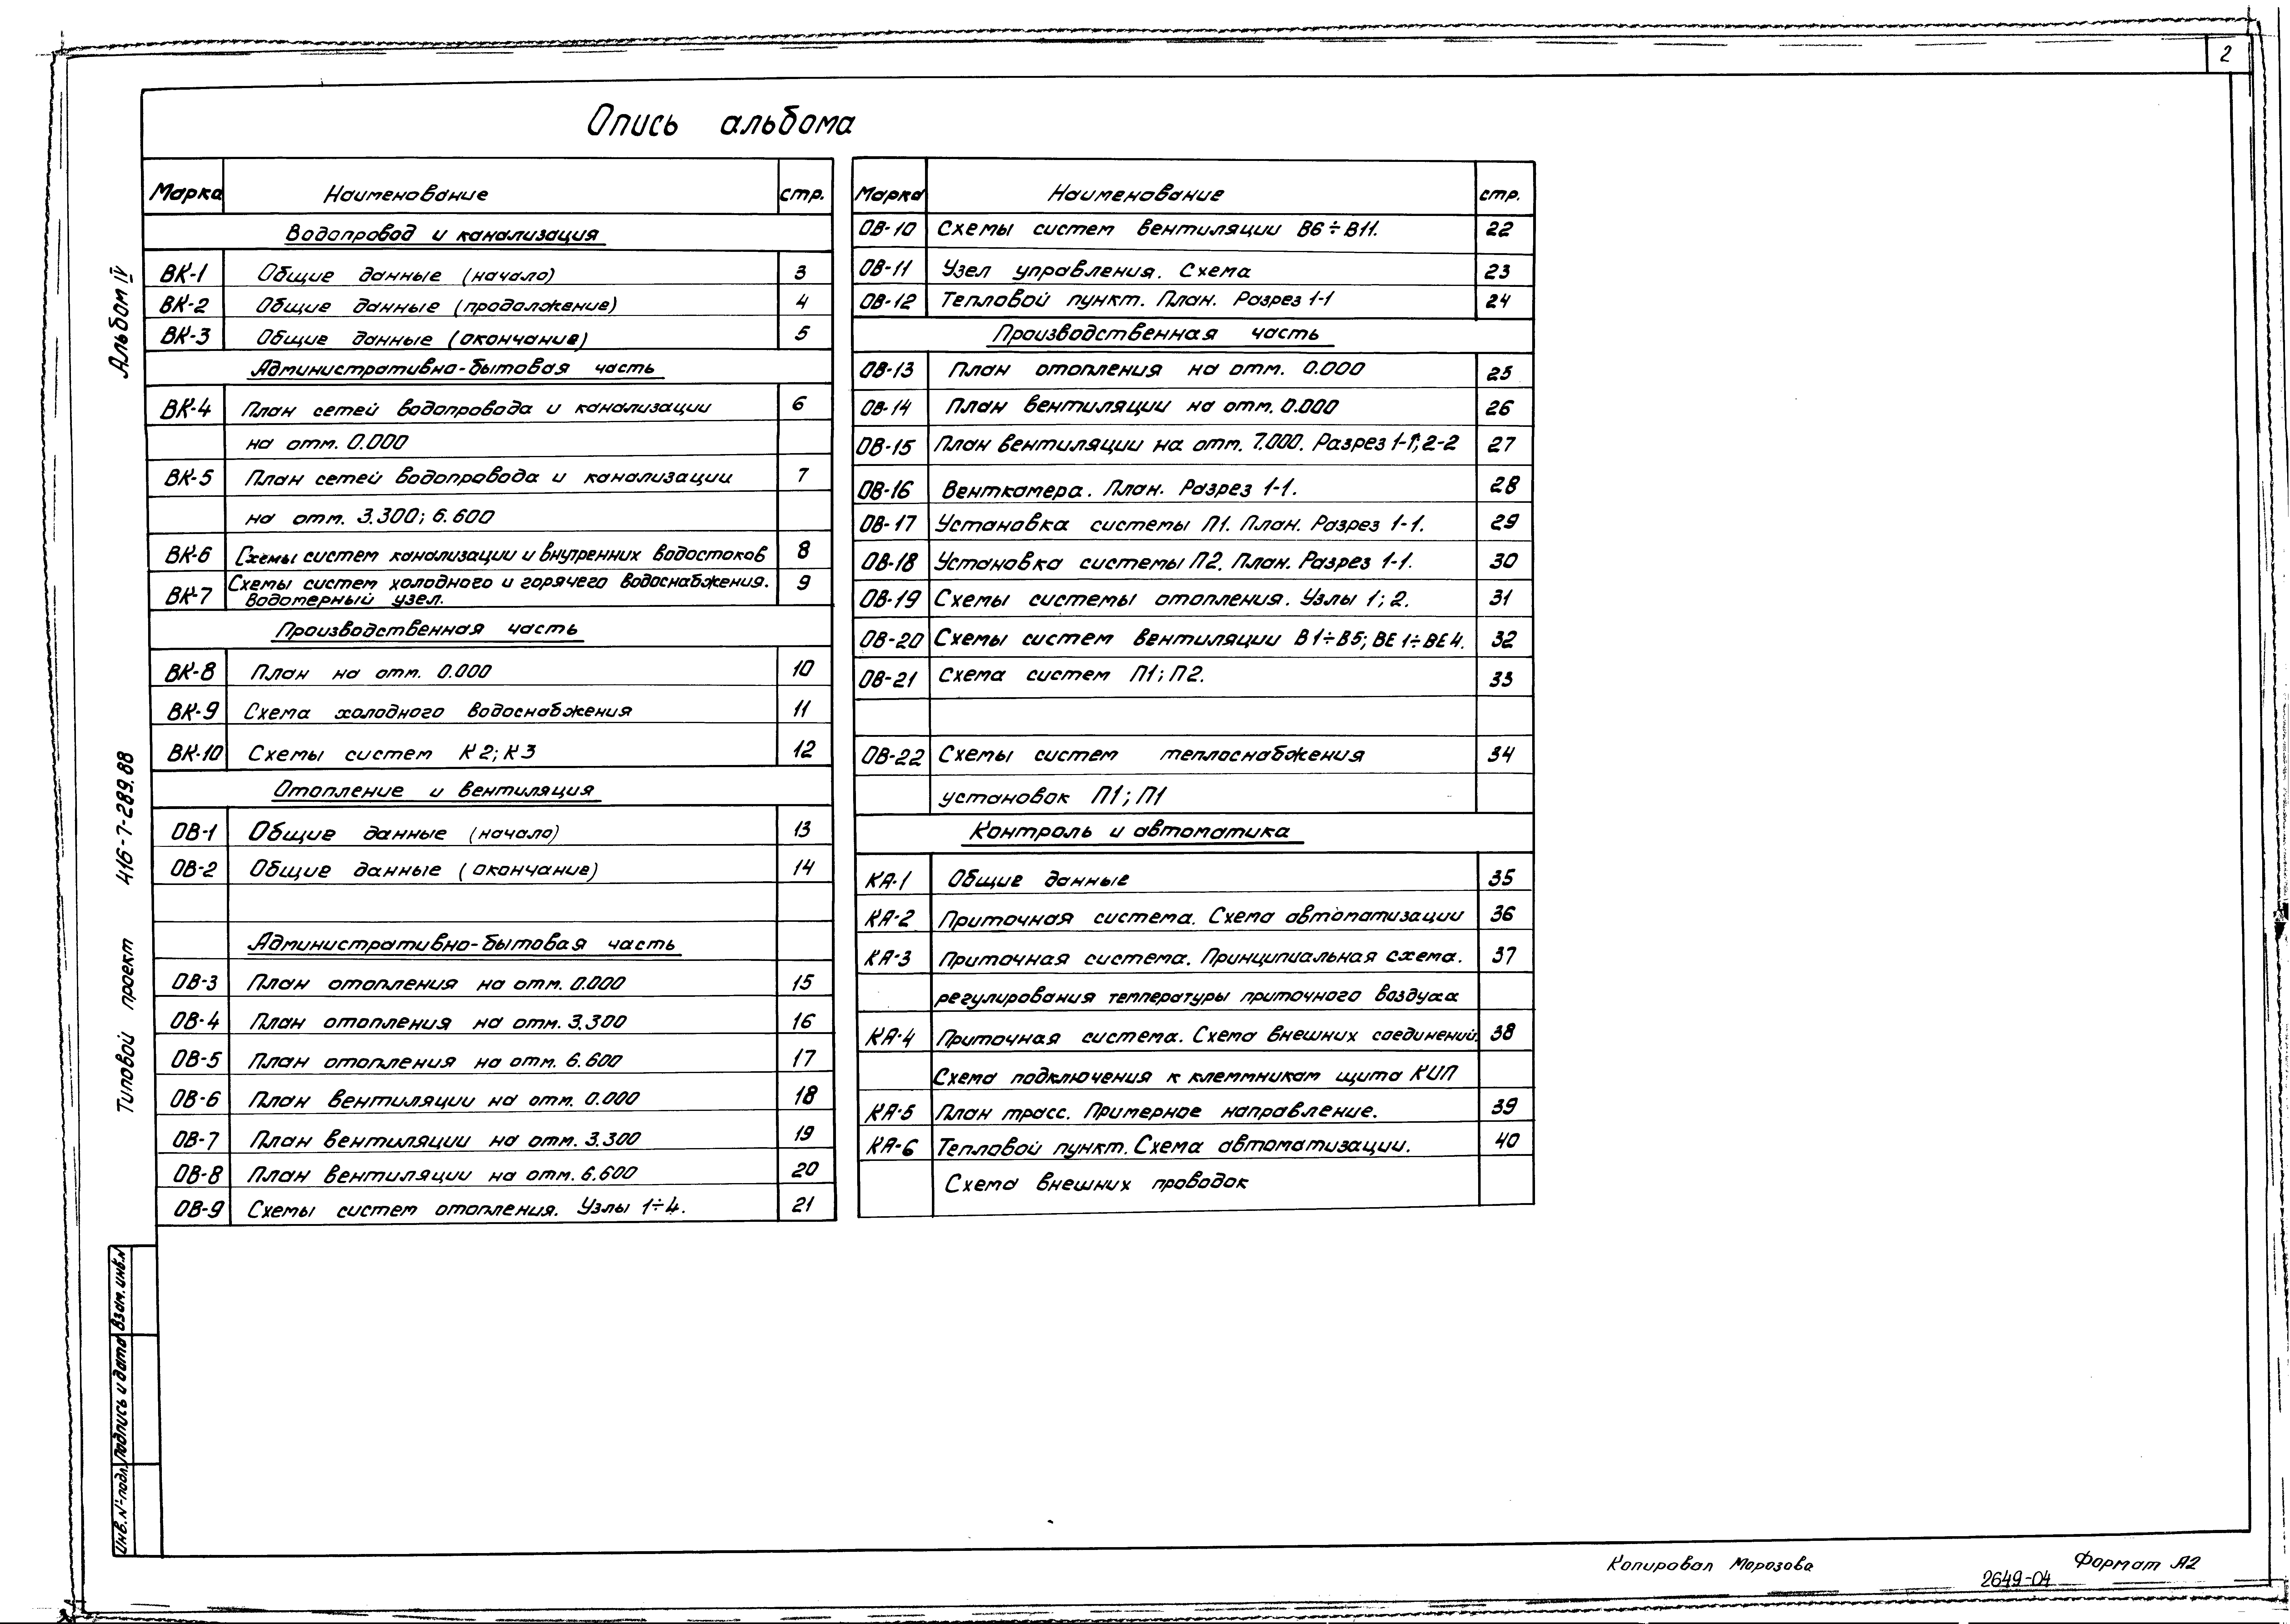 2
Опись альбома
Марка Наименование стр.
Водопровод и канализация
ВК-1 Общие данные (начало) 3
ВК-2 Общие данные (продолжение) 4
ВК-3 Общие данные (окончание) 5
Административно-бытовая часть
ВК-4 План сетей водопровода и канализации 6
на отм. 0.000
ВК-5 План сетей водопровода и канализации 7
на отм. 3.300; 6.600
ВК-6 Схемы систем канализации и внутренних водостоков 8
ВК-7 Схемы систем холодного и горячего водоснабжения. 9
Водомерный узел.
Производственная часть
ВК-8 План на отм. 0.000 10
ВК-9 Схема холодного водоснабжения 11
ВК-10 Схемы систем К2; К3 12
Отопление и вентиляция
ОВ-1 Общие данные (начало) 13
ОВ-2 Общие данные (окончание) 14
Административно-бытовая часть
ОВ-3 План отопления на отм. 0.000 15
ОВ-4 План отопления на отм. 3.300 16
ОВ-5 План отопления на отм. 6.600 17
ОВ-6 План вентиляции на отм. 0.000 18
ОВ-7 План вентиляции на отм. 3.300 19
ОВ-8 План вентиляции на отм. 6.600 20
ОВ-9 Схемы систем отопления. Узлы 1÷4. 21
Марка Наименование стр.
ОВ-10 Схемы систем вентиляции В6÷В11. 22
ОВ-11 Узел управления. Схема 23
ОВ-12 Тепловой пункт. План. Разрез 1-1 24
Производственная часть
ОВ-13 План отопления на отм. 0.000 25
ОВ-14 План вентиляции на отм. 0.000 26
ОВ-15 План вентиляции на отм. 7.000. Разрез 1-1; 2-2 27
ОВ-16 Венткамера. План. Разрез 1-1. 28
ОВ-17 Установка системы П1. План. Разрез 1-1. 29
ОВ-18 Установка системы П2. План. Разрез 1-1. 30
ОВ-19 Схемы системы отопления. Узлы 1; 2. 31
ОВ-20 Схемы систем вентиляции В1÷В5; ВЕ1÷ВЕ4. 32
ОВ-21 Схема систем П1; П2. 33
ОВ-22 Схемы систем теплоснабжения 34
установок П1; П1
Контроль и автоматика
КА-1 Общие данные 35
КА-2 Приточная система. Схема автоматизации 36
КА-3 Приточная система. Принципиальная схема. 37
регулирования температуры приточного воздуха
КА-4 Приточная система. Схема внешних соединений. 38
Схема подключения к клеммникам щита КИП
КА-5 План трасс. Примерное направление. 39
КА-6 Тепловой пункт. Схема автоматизации. 40
Схема внешних проводок
Альбом IV
Типовой проект 416-7-289.88
Взам. инв. №
Подпись и дата
Инв. № подл.
Копировал Морозова
Формат А2
2649-04